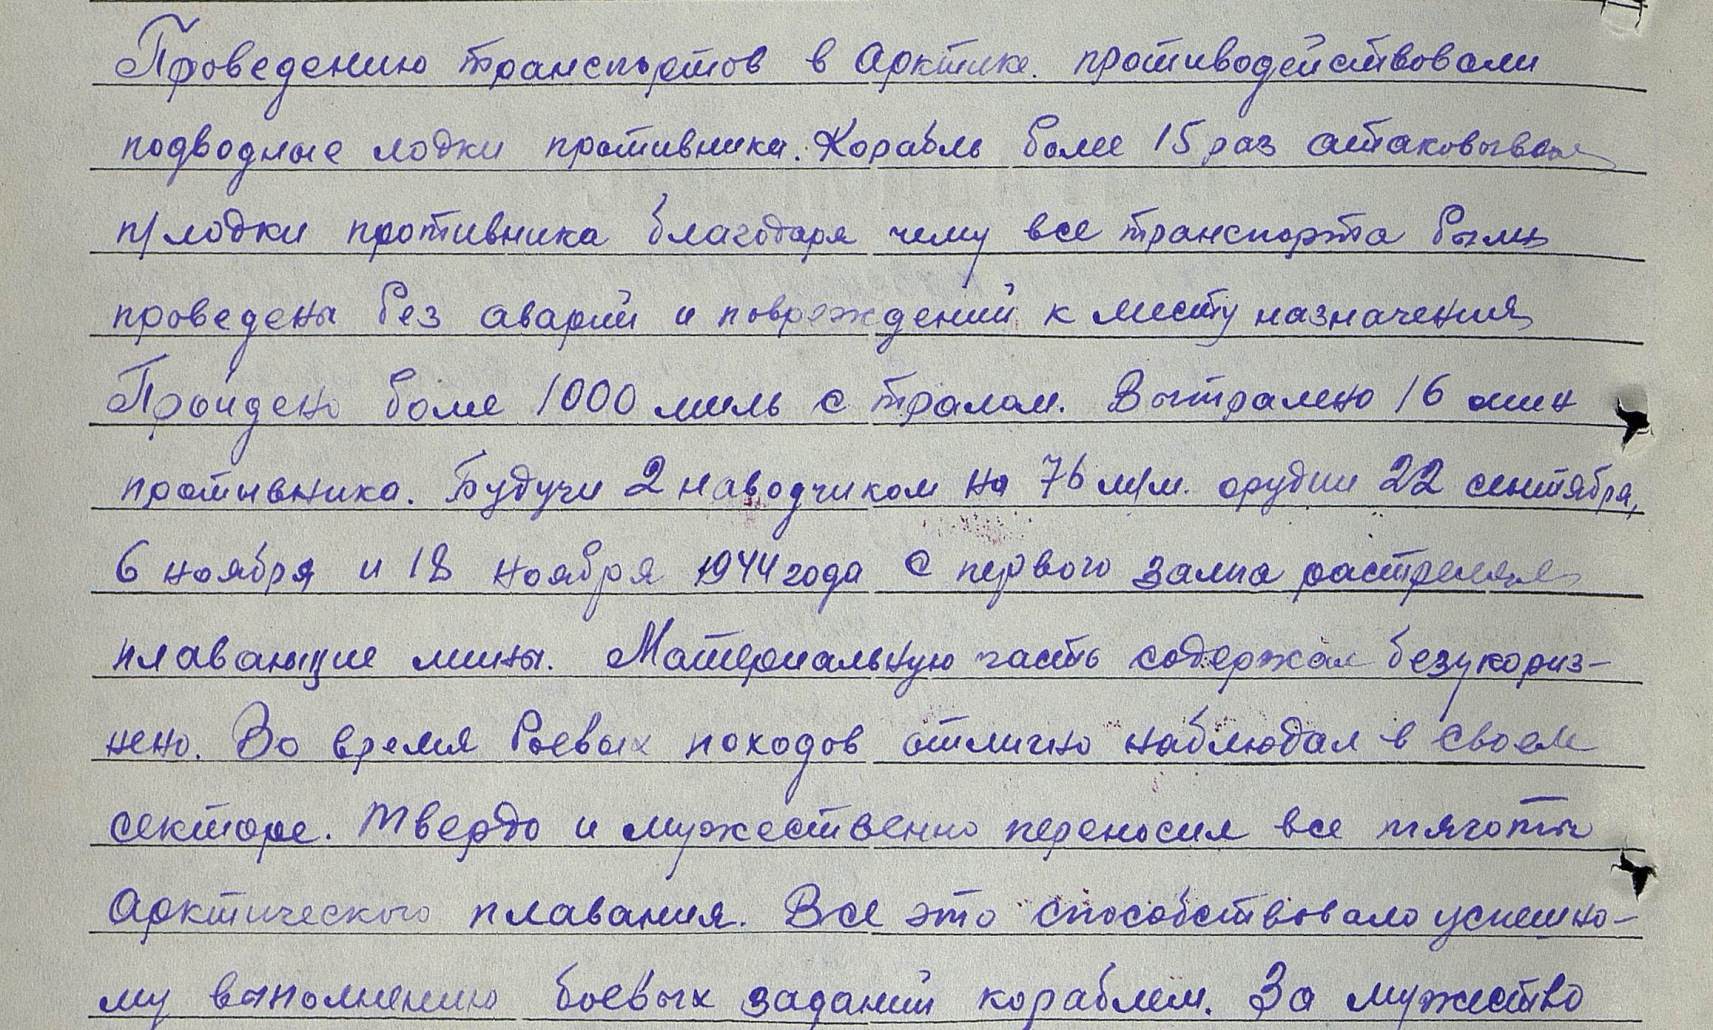 Проведению транспортов в Арктике противодействовали
подводные лодки противника. Корабль более 15 раз атаковывал
п/лодки противника благодаря чему все транспорта были
проведены без аварий и повреждений к месту назначения
Пройдено более 1000 миль с тралом. Вытралено 16 мин
противника. Будучи 2 наводчиком на 76 м/м. орудии 22 сентября,
6 ноября и 18 ноября 1944 года с первого залпа растрелял
плавающие мины. Материальную часть содержал безукориз-
нено. Во время боевых походов отлично наблюдал в своем
секторе. Твердо и мужественно переносил все тяготы
Арктического плавания. Все это способствовало успешно-
му выполнению боевых заданий кораблем. За мужество